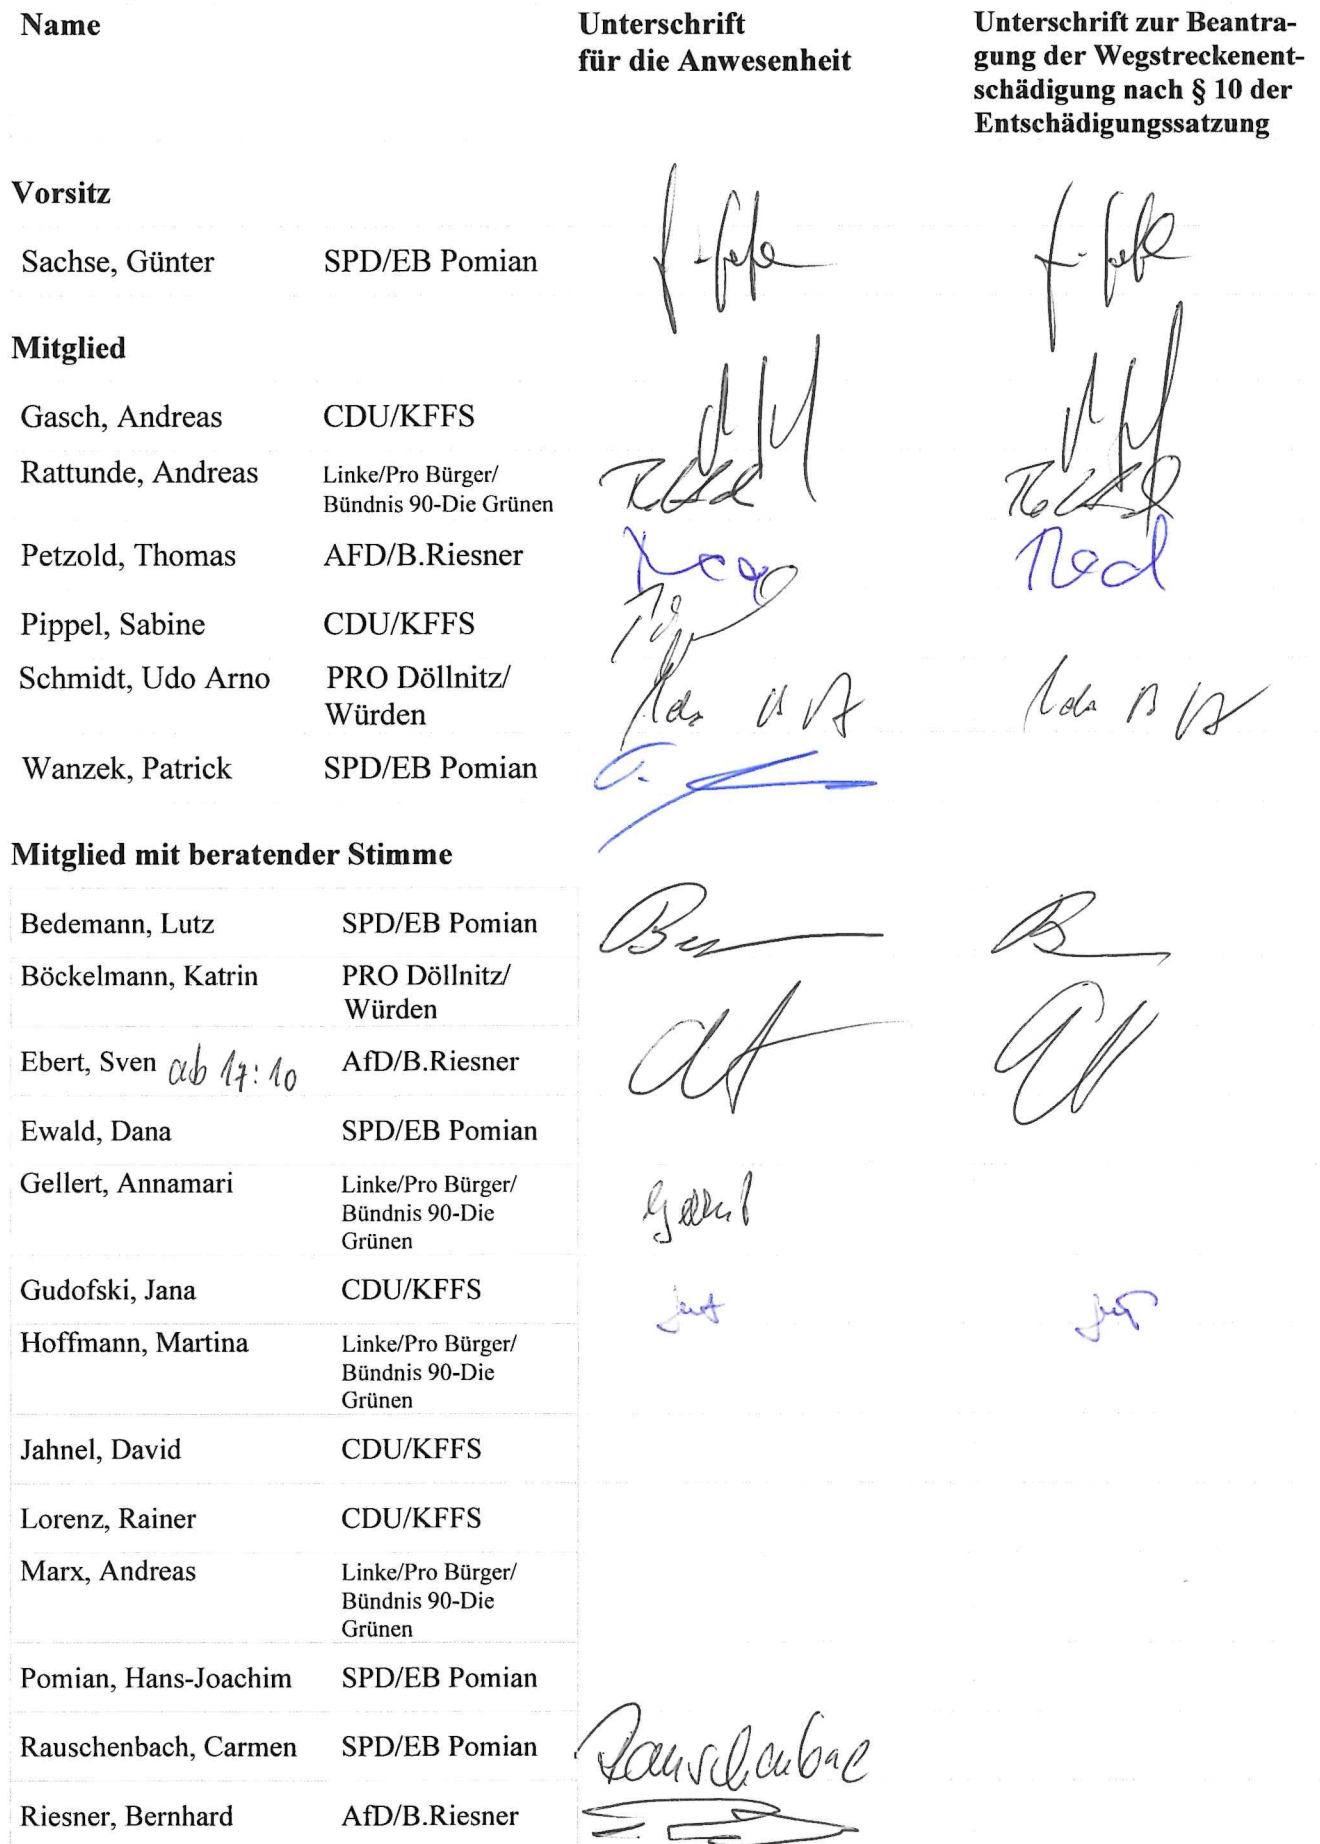 Name
Unterschrift
für die Anwesenheit
Unterschrift zur Beantra-
gung der Wegstreckenent-
schädigung nach § 10 der
Entschädigungssatzung
Vorsitz
Sachse, Günter SPD/EB Pomian
Mitglied
Gasch, Andreas CDU/KFFS
Rattunde, Andreas Linke/Pro Bürger/
Bündnis 90-Die Grünen
Petzold, Thomas AFD/B.Riesner
Pippel, Sabine CDU/KFFS
Schmidt, Udo Arno PRO Döllnitz/
Würden
Wanzek, Patrick SPD/EB Pomian
Mitglied mit beratender Stimme
Bedemann, Lutz SPD/EB Pomian
Böckelmann, Katrin PRO Döllnitz/
Würden
Ebert, Sven ab 17:10 AfD/B.Riesner
Ewald, Dana SPD/EB Pomian
Gellert, Annamari Linke/Pro Bürger/
Bündnis 90-Die
Grünen
Gudofski, Jana CDU/KFFS
Hoffmann, Martina Linke/Pro Bürger/
Bündnis 90-Die
Grünen
Jahnel, David CDU/KFFS
Lorenz, Rainer CDU/KFFS
Marx, Andreas Linke/Pro Bürger/
Bündnis 90-Die
Grünen
Pomian, Hans-Joachim SPD/EB Pomian
Rauschenbach, Carmen SPD/EB Pomian
Riesner, Bernhard AfD/B.Riesner